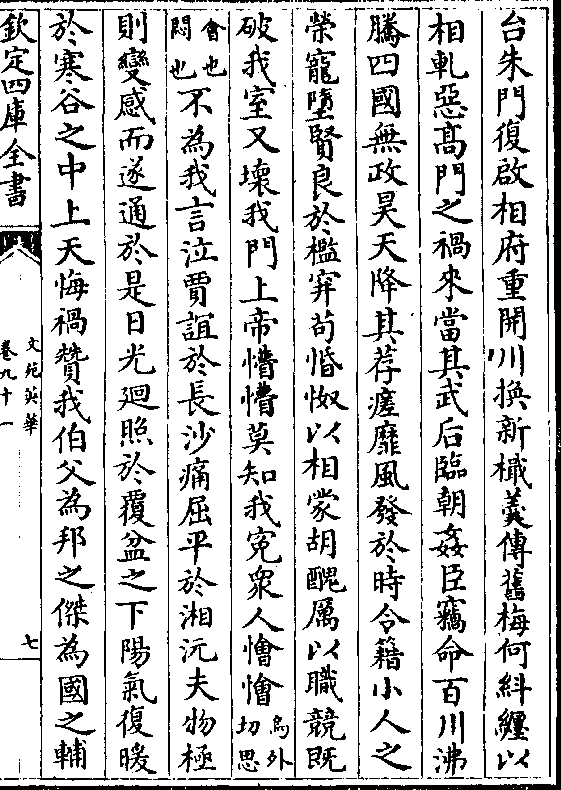 台朱門復啟相府重開川換新檝羮傳舊梅何糾纒以
相軋惡髙門之禍來當其武后臨朝姦臣竊命百川沸
騰四國無政昊天降其荐瘥靡風發於時令籍小人之
榮寵墮賢良於檻穽苟惛怓以相蒙胡醜厲以職競既
破我室又壞我門上帝懵懵莫知我寃衆人憎憎烏外切思
會也悶也不為我言泣賈誼於長沙痛屈平於湘沅夫物極
則變感而遂通於是日光廻照於覆盆之下陽氣復暖
於寒谷之中上天悔禍贊我伯父為邦之傑為國之輔
欽定四庫全書
文苑英華
卷九十一
七